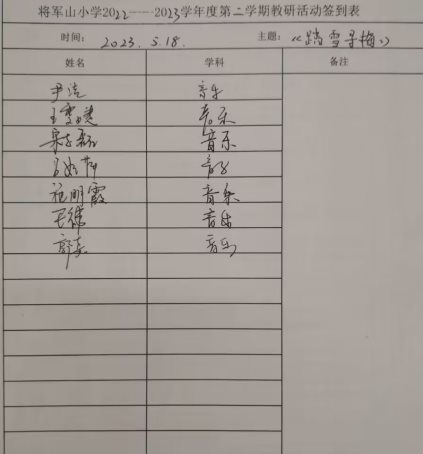 将军山小学2022——2023学年度第二学期教研活动签到表
时间: 2023.5.18. 主题:《踏雪寻梅》
姓名 学科 备注
尹洁 音乐
音乐
音乐
音乐
祝明霞 音乐
音乐
音乐